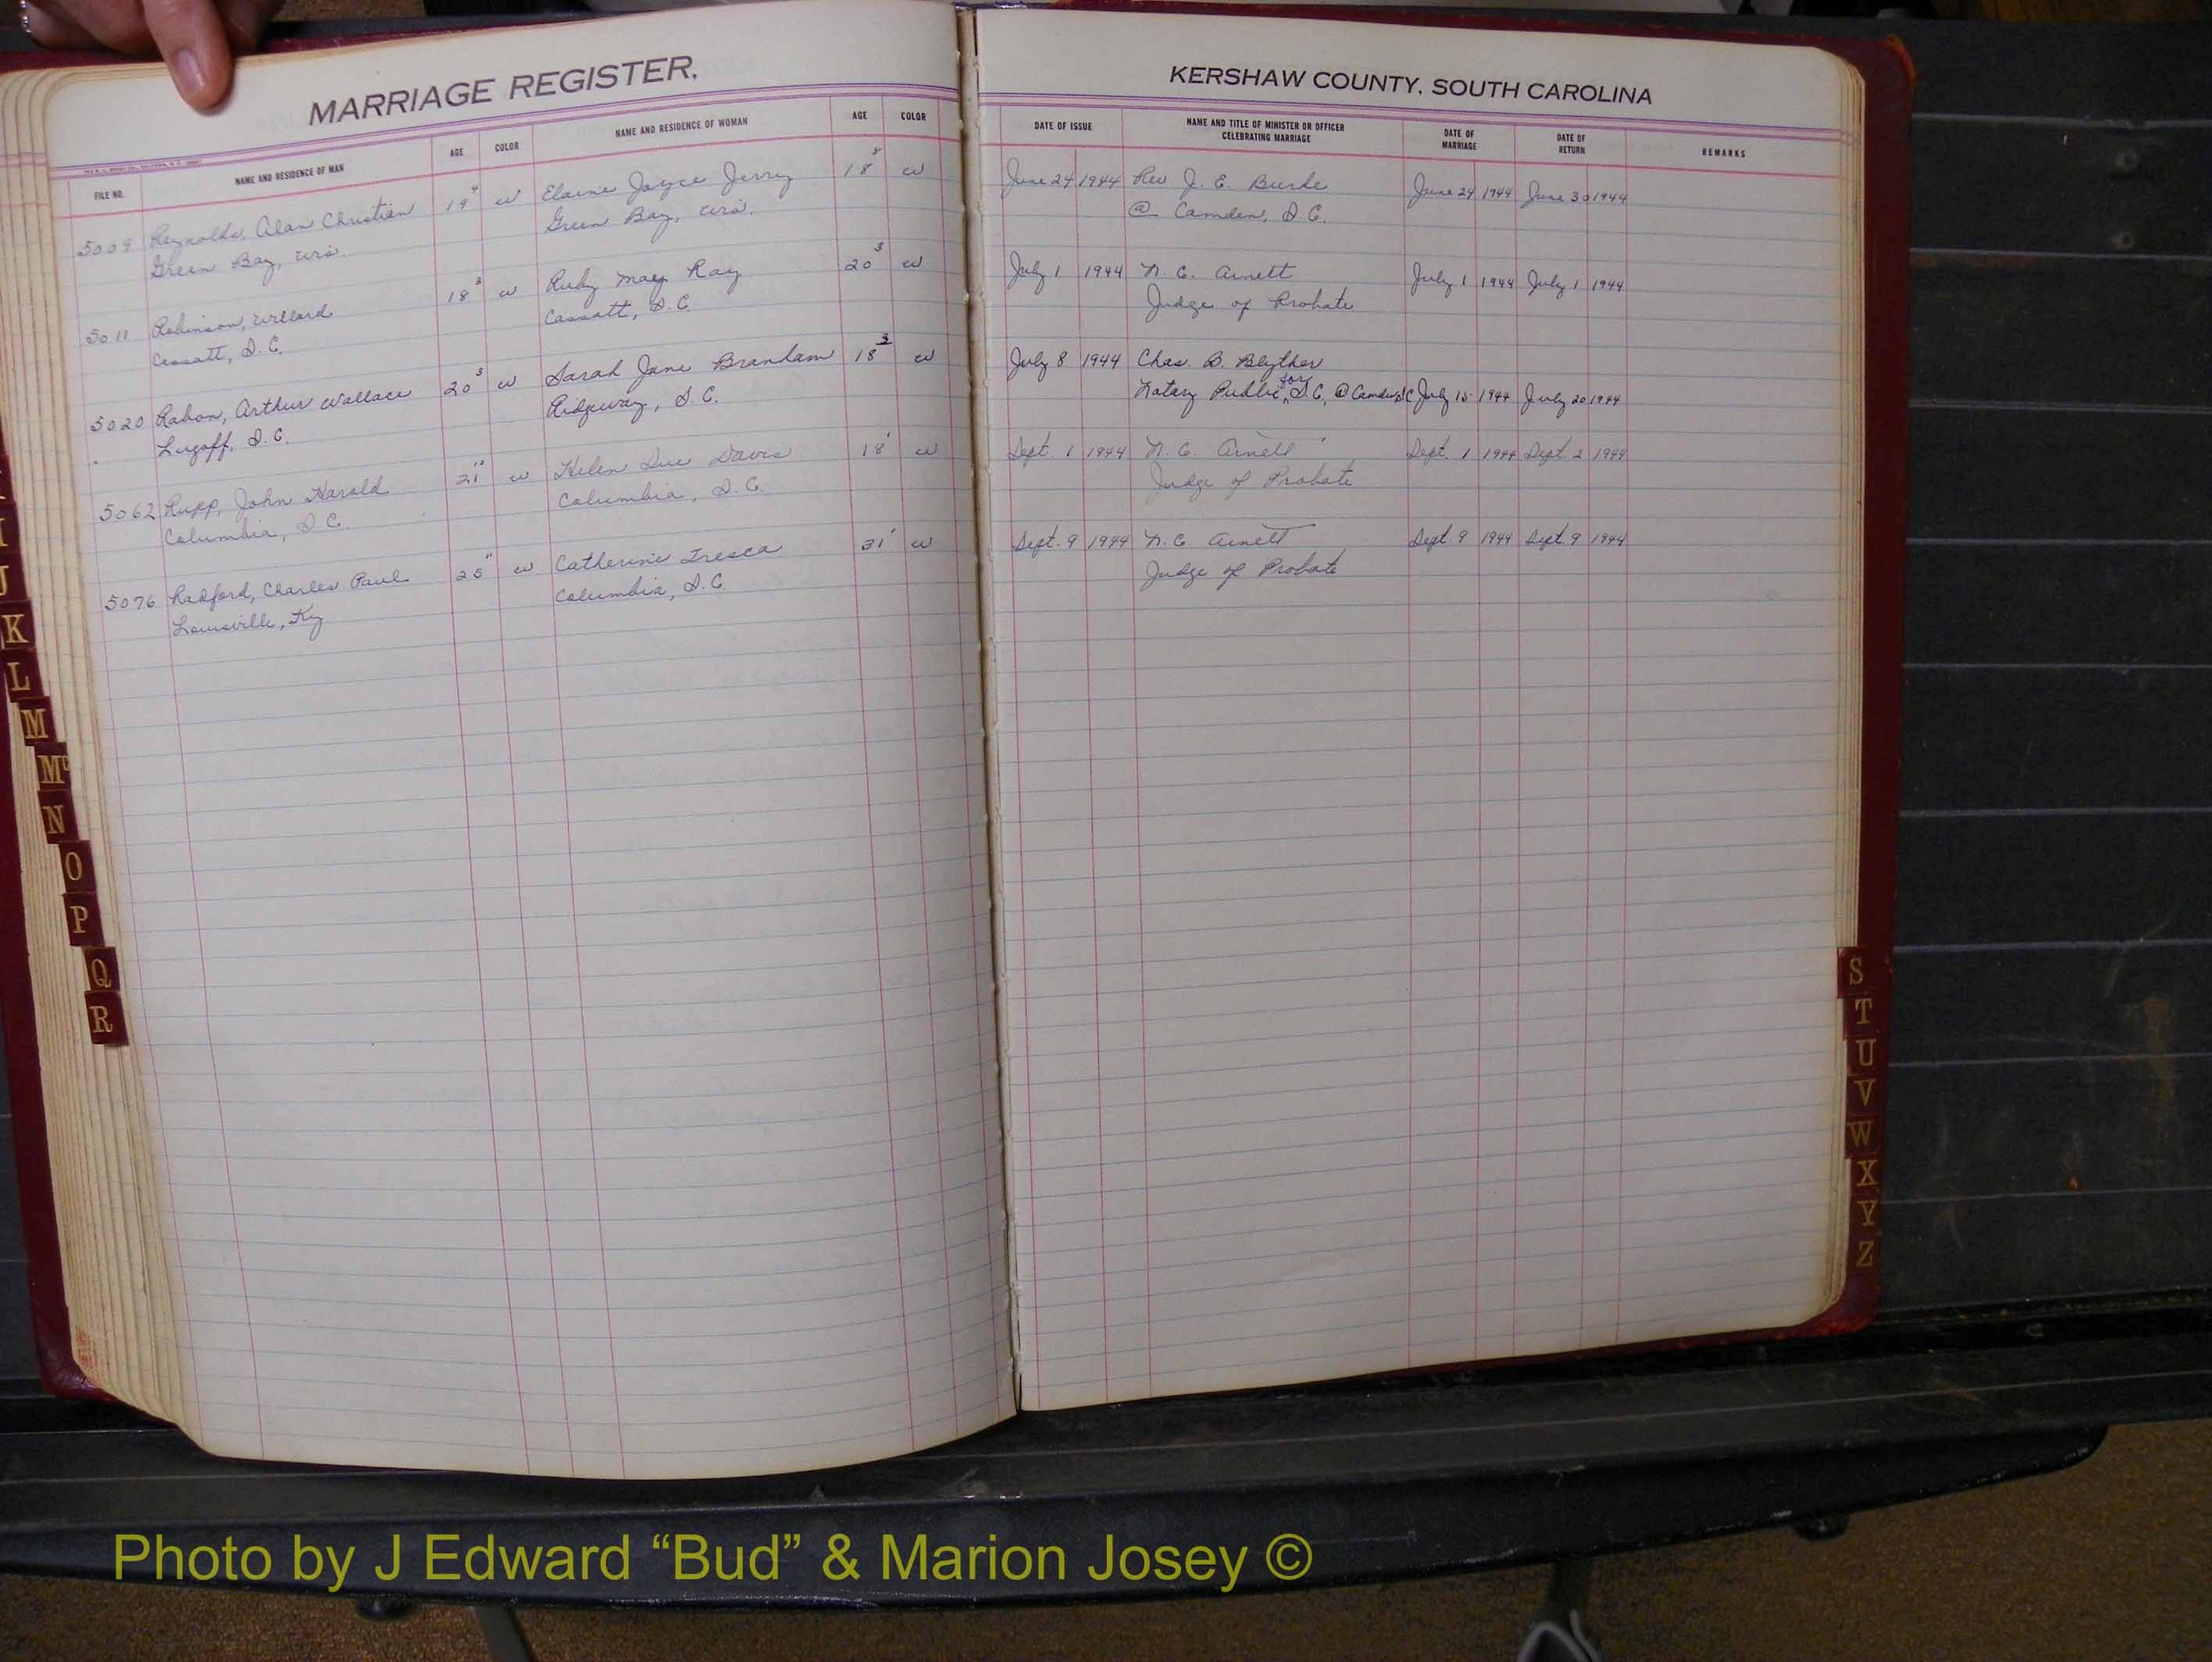 MARRIAGE REGISTER.
KERSHAW COUNTY, SOUTH CAROLINA
FILE NO. NAME AND RESIDENCE OF MAN AGE COLOR NAME AND RESIDENCE OF WOMAN AGE COLOR DATE OF ISSUE NAME AND TITLE OF MINISTER OR OFFICER CELEBRATING MARRIAGE DATE OF MARRIAGE DATE OF RETURN REMARKS
5009 Reynolds, Alan Christian 19 w Elaine Joyce Jerry 18 8 w June 24 1944 Rev J. E. Burke June 24 1944 June 30 1944
Green Bay, Wis. Green Bay, Wis. @ Camden, S.C.
5011 Robinson, Willard 18 3 w Ruby Mae Ray 20 3 w July 1 1944 N. C. Arnett July 1 1944 July 1 1944
Cassatt, S.C. Cassatt, S.C. Judge of Probate
5020 Rabon, Arthur Wallace 20 3 w Sarah Jane Branham 18 3 w July 8 1944 Chas. B. Blyther
Lugoff, S.C. Ridgeway, S.C. Notary Public for S.C. @ Camden SC July 15 1944 July 20 1944
5062 Rupp, John Harold 21 10 w Helen Sue Davis 18 w Sept. 1 1944 N. C. Arnett Sept. 1 1944 Sept. 2 1944
Columbia, S.C. Columbia, S.C. Judge of Probate
5076 Radford, Charles Paul 25 11 w Catherine Tresca 31 w Sept. 9 1944 N. C. Arnett Sept. 9 1944 Sept. 9 1944
Louisville, Ky Columbia, S.C. Judge of Probate
J
K
L
M
Mc
N
O
P
Q
R
S
T
U
V
W
X
Y
Z
Photo by J Edward “Bud” & Marion Josey ©